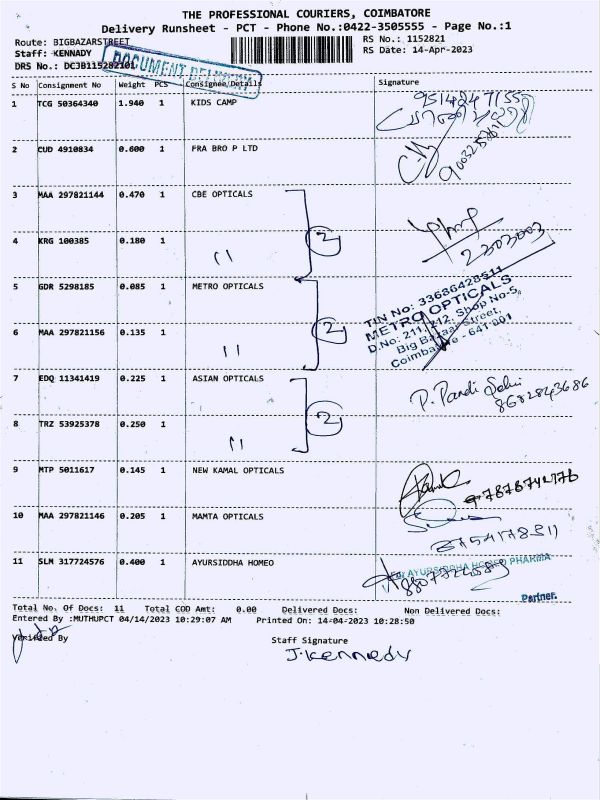 THE PROFESSIONAL COURIERS, COIMBATORE
Delivery Runsheet - PCT - Phone No.:0422-3505555 - Page No.:1
Route: BIGBAZARSTREET RS No.: 1152821
Staff: KENNADY RS Date: 14-Apr-2023
DRS No.: DCJB115282101
DOCUMENT DELIVERY
S No Consignment No Weight PCS Consignee/Details Signature
1 TCG 50364340 1.940 1 KIDS CAMP
2 CUD 4910834 0.600 1 FRA BRO P LTD
3 MAA 297821144 0.470 1 CBE OPTICALS
4 KRG 100385 0.180 1 " 2 2303003
5 GDR 5298185 0.085 1 METRO OPTICALS
TIN No: 33636428511
METRO OPTICALS
D.No: 211, 212, Shop No-5,
Big Bazaar Street,
Coimbatore - 641 001
6 MAA 297821156 0.135 1 " 2
7 EDQ 11341419 0.225 1 ASIAN OPTICALS P. Pandi Selvi
8682843686
8 TRZ 53925378 0.250 1 " 2
9 MTP 5011617 0.145 1 NEW KAMAL OPTICALS
10 MAA 297821146 0.205 1 MAMTA OPTICALS
11 SLM 317724576 0.400 1 AYURSIDDHA HOMEO
AYURSIDDHA HOMEO PHARMA
Partner.
Total No. Of Docs: 11 Total COD Amt: 0.00 Delivered Docs: Non Delivered Docs:
Entered By :MUTHUPCT 04/14/2023 10:29:07 AM Printed On: 14-04-2023 10:28:50
Verified By Staff Signature
J.Kennedy